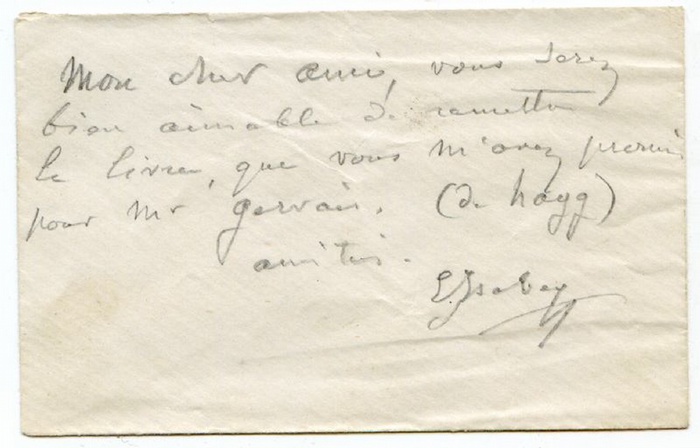 Mon cher ami, vous serez
bien aimable de remettre
le livre, que vous m'avez promis
pour Mr Gervais. (de hogg)
amitiés.
E Isabey